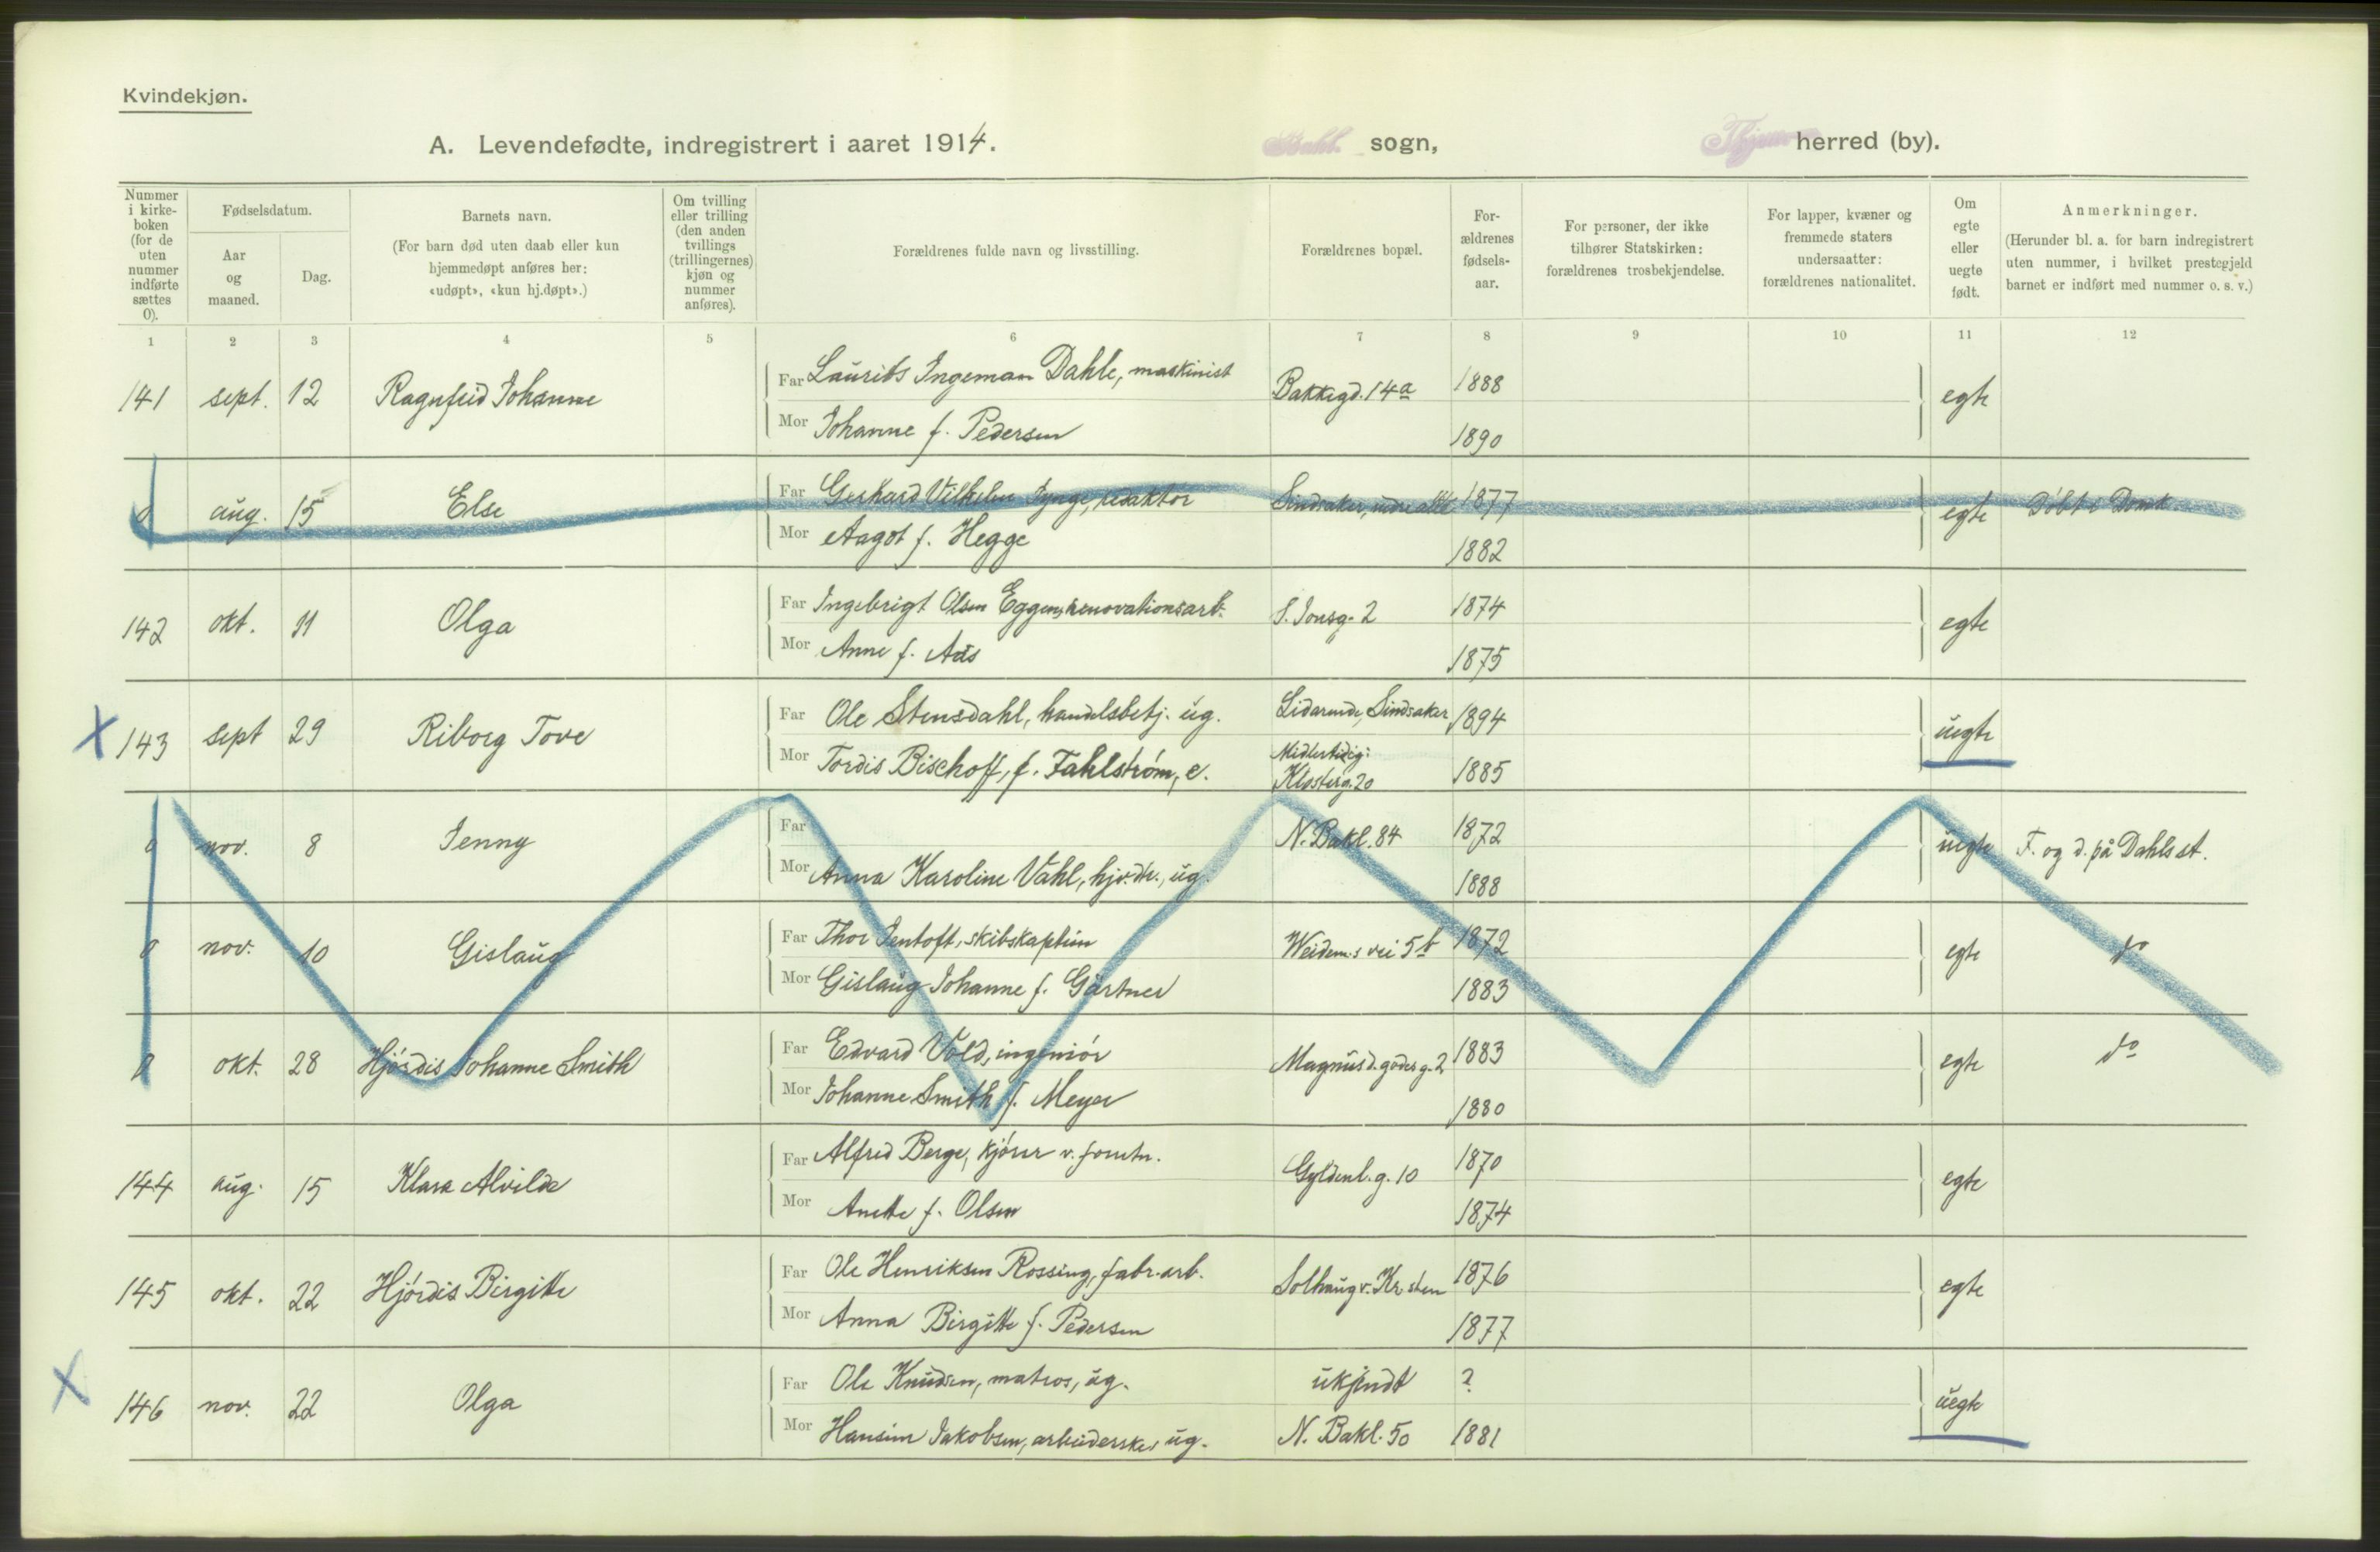 Kvindekjøn.
A. Levendefødte, indregistrert i aaret 1914. Bakl. sogn, herred (by).
Nummer i kirke-boken (for de uten nummer indførte sættes 0).
Fødselsdatum.
Aar og maaned.
Dag.
Barnets navn.
(For barn død uten daab eller kun hjemmedøpt anføres her: «udøpt», «kun hj.døpt».)
Om tvilling eller trilling (den anden tvillings (trillingernes) kjøn og nummer anføres).
Forældrenes fulde navn og livsstilling.
Forældrenes bopæl.
For-ældrenes fødsels-aar.
For personer, der ikke tilhører Statskirken: forældrenes trosbekjendelse.
For lapper, kvæner og fremmede staters undersaatter: forældrenes nationalitet.
Om egte eller uegte født.
Anmerkninger.
(Herunder bl. a. for barn indregistrert uten nummer, i hvilket prestegjeld barnet er indført med nummer o. s. v.)
1 2 3 4 5 6 7 8 9 10 11 12
141 sept. 12 Ragnfrid Johanne Far Laurits Ingeman Dahle, maskinist Bakkegd. 14a 1888 egte
Mor Johanne f. Pedersen 1890
0 aug. 15 Else Far Gerhard Vilhelm redaktör Sindsaker, 1877 egte Döbt i Domk.
Mor Aagot f. Hegge 1882
142 okt. 11 Olga Far Ingebrigt Olsen Eggen, renovationsarb. S. Jonsg. 2 1874 egte
Mor Anne f. Aas 1875
X 143 sept 29 Riborg Tove Far Ole Stensdahl, handelsbetj. ug. Lidarende, Sindsaker 1894 uegte
Mor Tordis Bischoff, f. Fahlström, e. Midlertidig: Klosterg. 20 1885
0 nov. 8 Jenny Far N. Bakl. 84 1872 uegte F. og d. på Dahls st.
Mor Anna Karoline Vahl, hjv.dtr., ug. 1888
0 nov. 10 Gislaug Far Thor Jentoft, skibskaptein Weidem.s vei 5b 1872 egte do
Mor Gislaug Johanne f. Gärtner 1883
0 okt. 28 Hjördis Johanne Smith Far Edvard Vold, ingeniör Magnus d. godes g. 2 1883 egte do
Mor Johanne Smith f. Meyer 1880
144 aug. 15 Klara Alvilde Far Alfred Berge, kjörer v. Gyldenl. g. 10 1870 egte
Mor Anette f. Olsen 1874
145 okt. 22 Hjördis Birgitte Far Ole Henriksen Rossing, fabr. arb. Solhaug v. Kr. sten 1876 egte
Mor Anna Birgitte f. Pedersen 1877
X 146 nov. 22 Olga Far Ole Knudsen, matros, ug. ukjendt ? uegte
Mor Hansine Jakobsen, arbeiderske, ug. N. Bakl. 50 1881